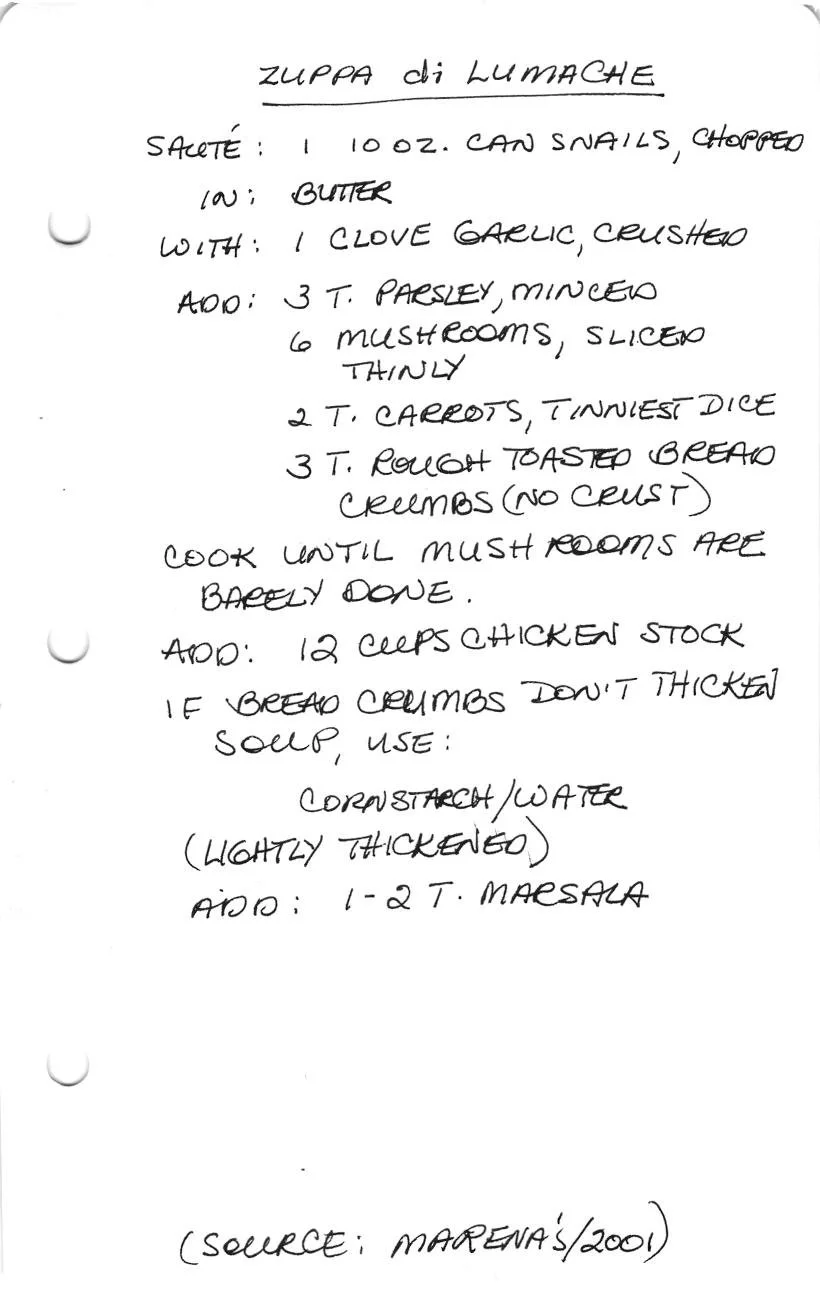 ZUPPA di LUMACHE
SAUTÉ: 1 10 OZ. CAN SNAILS, CHOPPED
IN: BUTTER
WITH: 1 CLOVE GARLIC, CRUSHED
ADD: 3 T. PARSLEY, MINCED
6 MUSHROOMS, SLICED
THINLY
2 T. CARROTS, TINNIEST DICE
3 T. ROUGH TOASTED BREAD
CRUMBS (NO CRUST)
COOK UNTIL MUSHROOMS ARE
BARELY DONE.
ADD: 12 CUPS CHICKEN STOCK
IF BREAD CRUMBS DON'T THICKEN
SOUP, USE:
CORNSTARCH/WATER
(LIGHTLY THICKENED)
ADD: 1-2 T. MARSALA
(SOURCE: MARENA'S/2001)